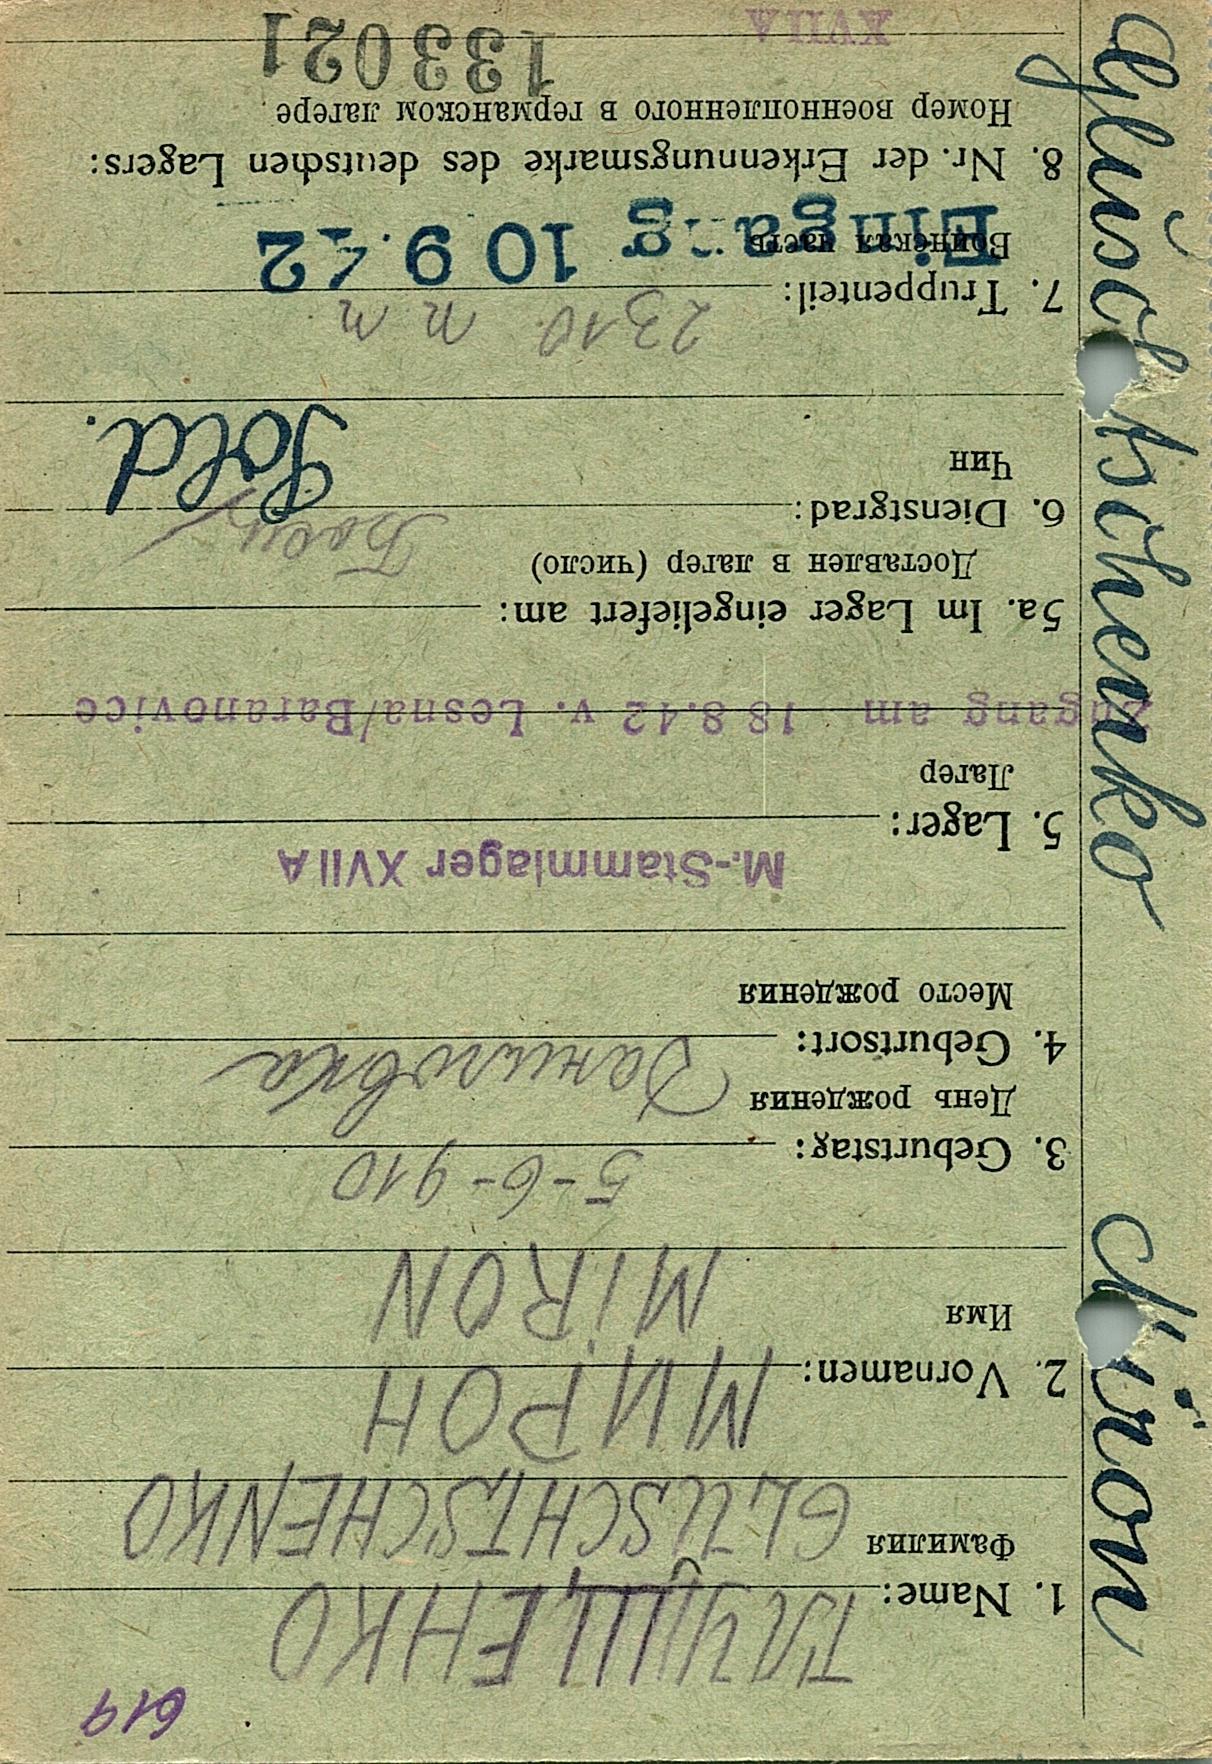 619
1. Name: ГЛУЩЕНКО
Фамилия GLUSCHTSCHENKO
2. Vornamen: МИРОН
Имя MIRON
3. Geburtstag: 5-6-910
День рождения
4. Geburtsort: Даниловка
Место рождения
M.-Stammlager XVII A
5. Lager:
Лагер
Zugang am 18.8.42 v. Lesna/Baranovice
5a. Im Lager eingeliefert am:
Доставлен в лагер (число)
6. Dienstgrad: Боец
Чин Sold.
7. Truppenteil: 2310 п п
Воинская часть
Eingang 10 9.42
8. Nr. der Erkennungsmarke des deutschen Lagers:
Номер военнопленного в германском лагере
XVII A 133021
Gluschtschenko Miron